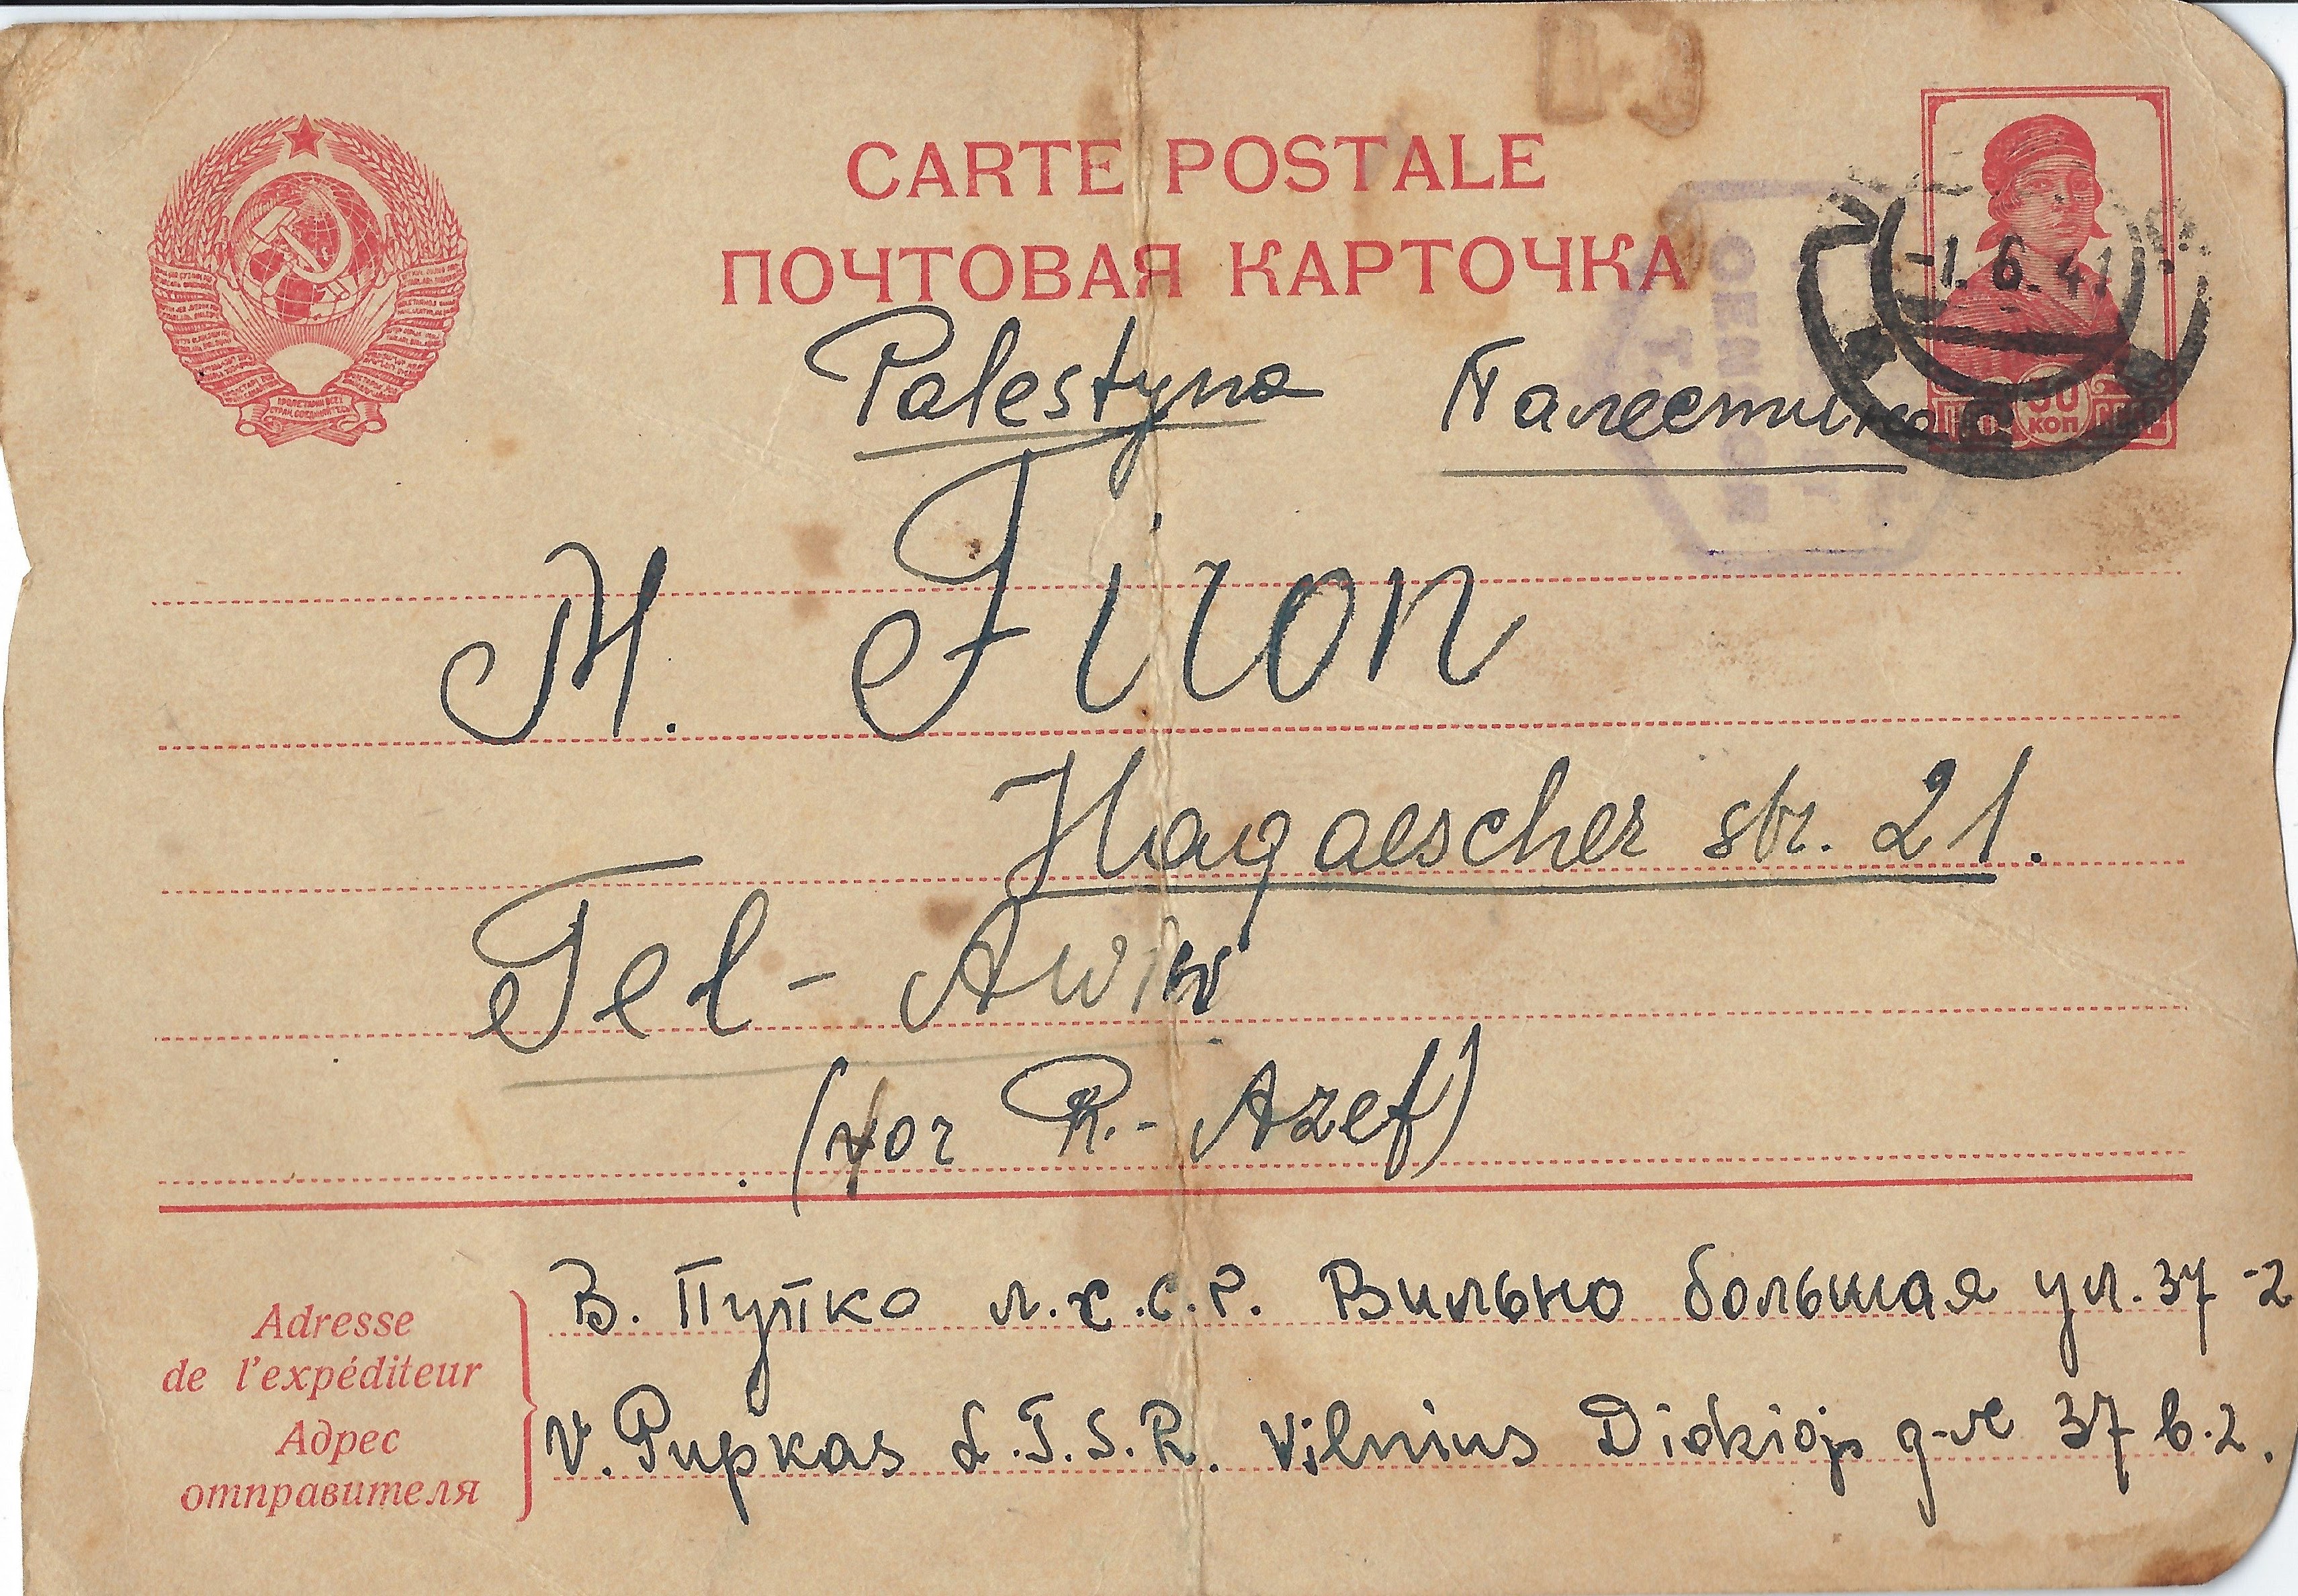 CARTE POSTALE
ПОЧТОВАЯ КАРТОЧКА
-1.6.41
КОП
Palestyna Палестина
M. Firon
Hagaescher str. 21.
Tel-Awiw
(vor R.- Azef)
Adresse
de l'expéditeur
Адрес
отправителя
В. Пупко л.с.с.р. Вильно большая ул. 37-2
V. Pupkas L.T.S.R. Vilnius Didžioji g-vė 37 b.2.